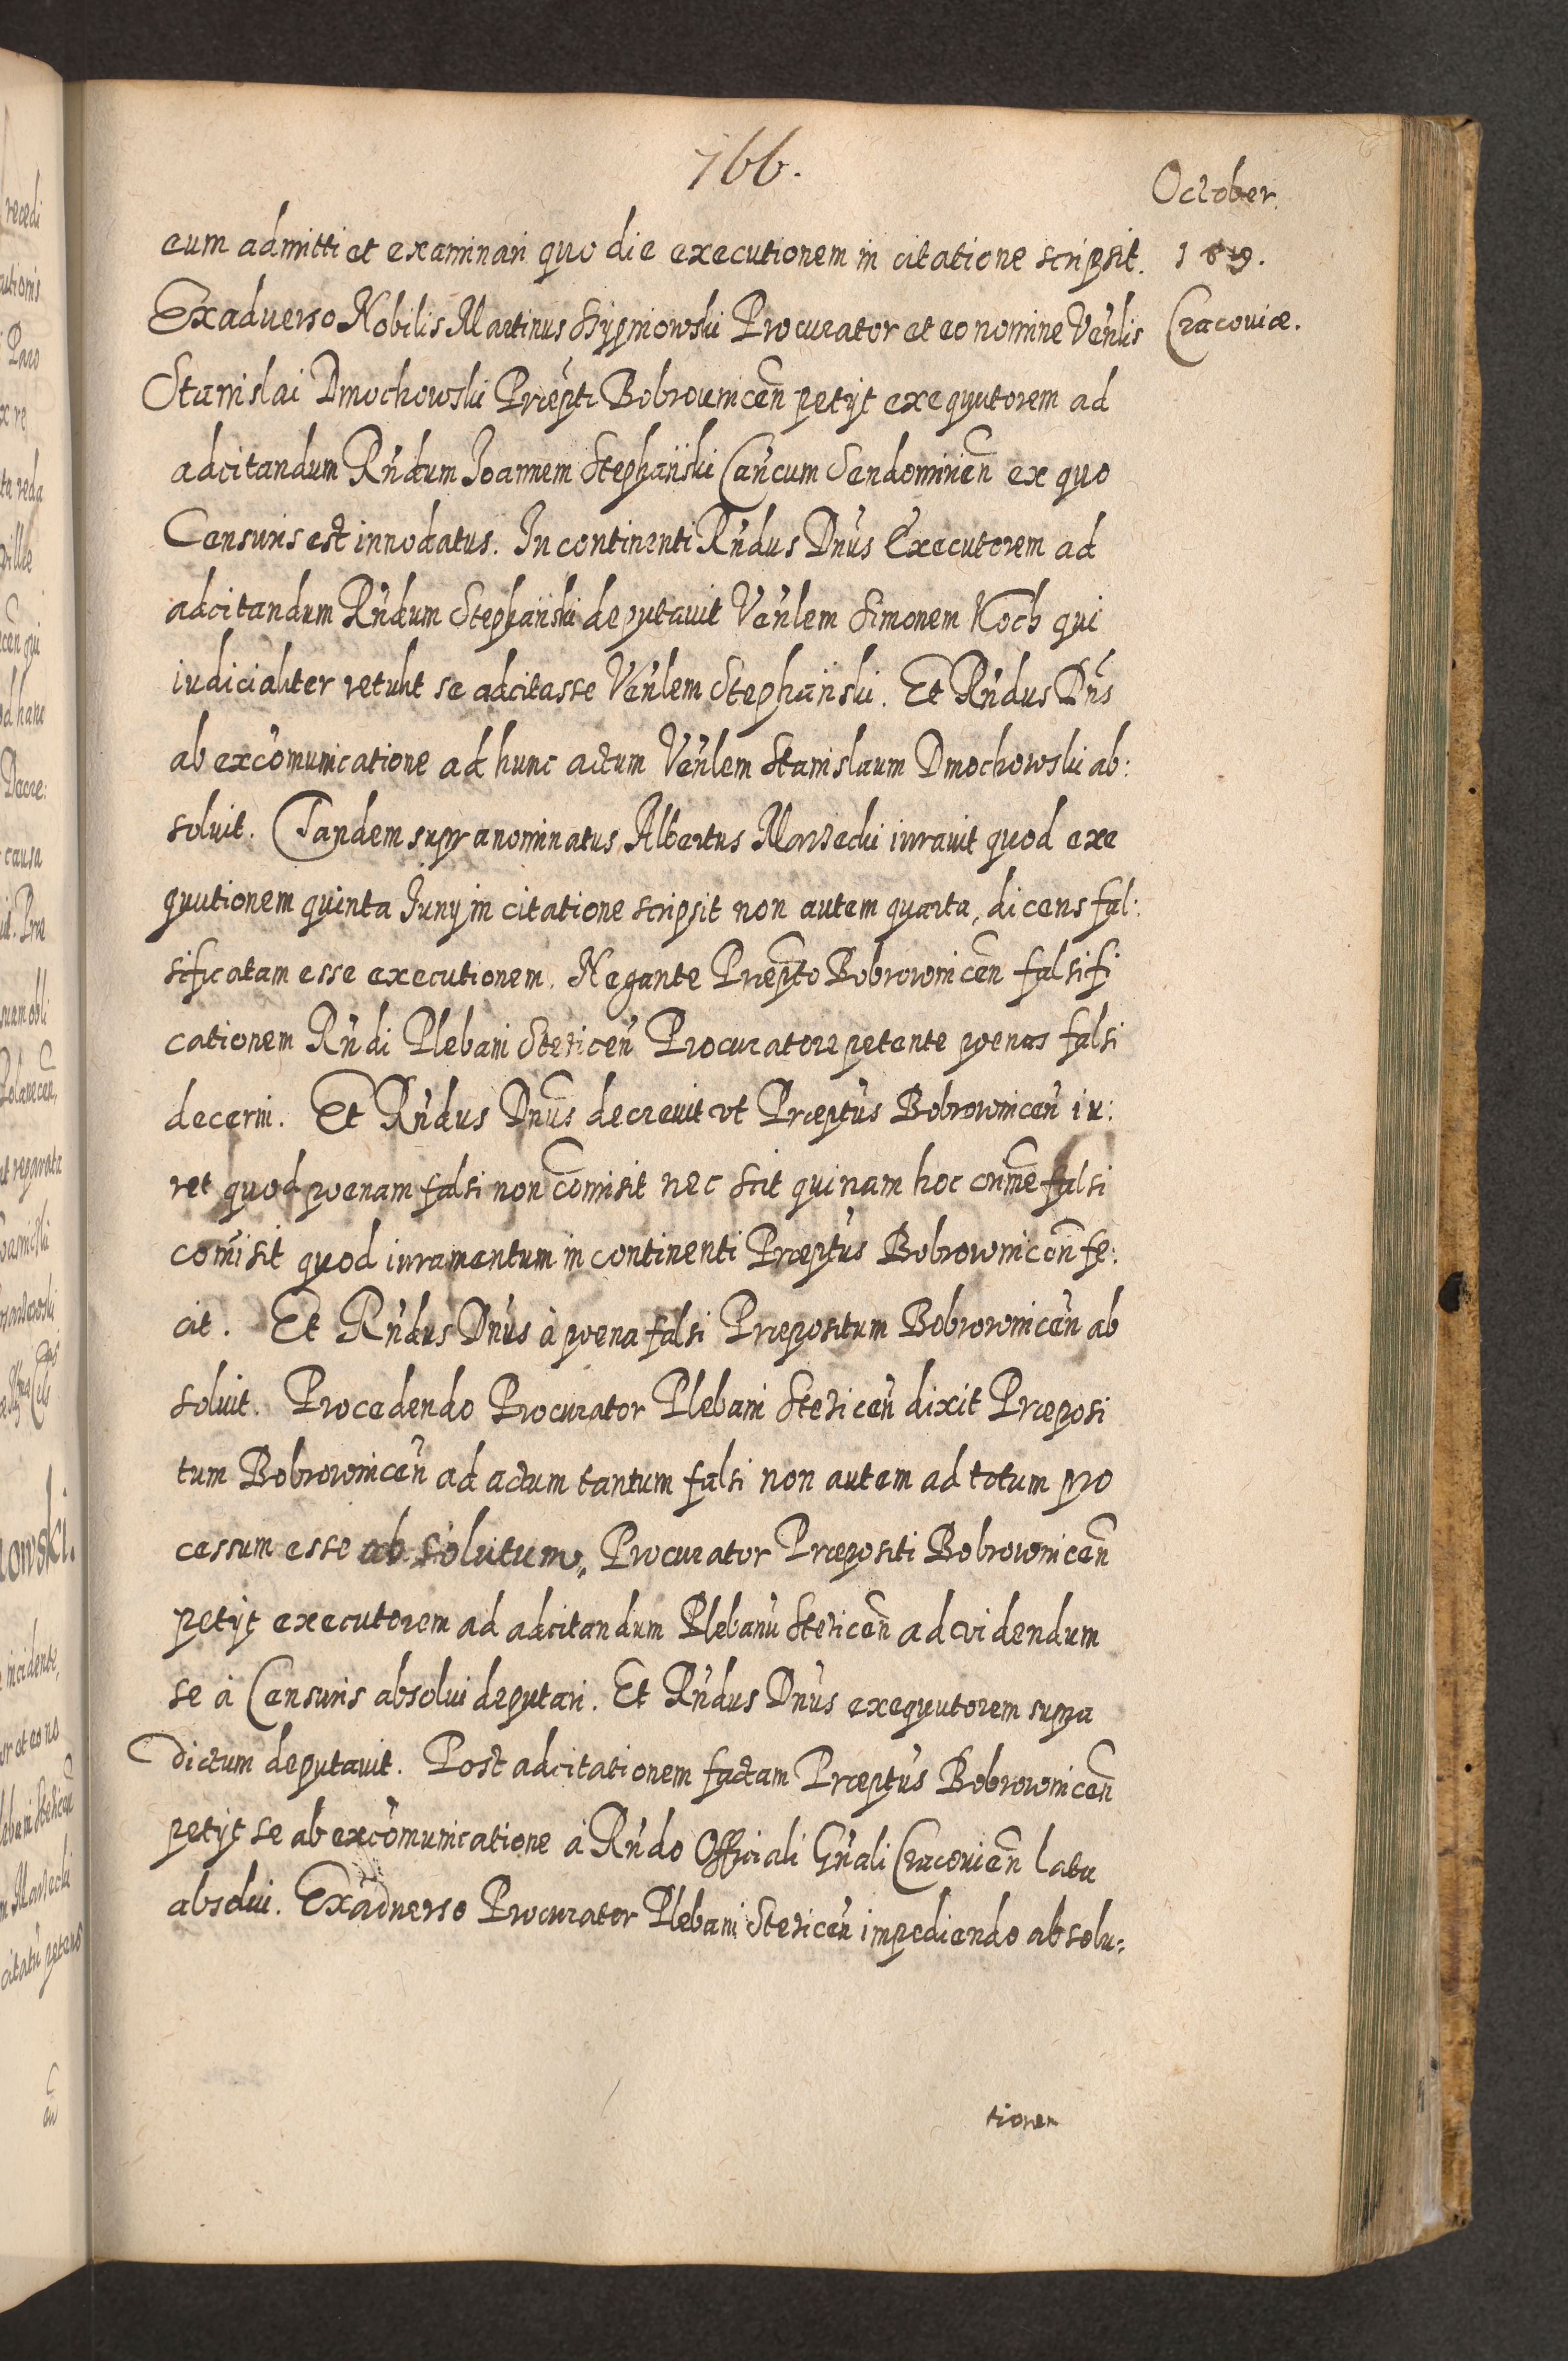 766.
October
eum admitti et examinari quo die executionem in citatione scripsit.
1619.
Exaduerso Nobilis Martinus Procurator et eo nomine Venlis
Cracouiæ.
Stanislai Dmochowski Præpti Bobrownicen petijt exequutorem ad
adcitandum Rndum Joannem Stephański Cancum Sendomirien ex quo
Censuris est innodatus. In continenti Rndus Dnus Executorem ad
adcitandum Rndum Stephański deputauit Venlem Simonem Koch qui
iudicialiter retulit se adcitasse Venlem Stephański. Et Rndus Dns
ab excomunicatione ad hunc actum Venlem Stanislaum Dmochowski ab:
soluit. Tandem supranominatus Albertus iurauit quod exe
quutionem quinta Junij in citatione scripsit non autem quarta, dicens fal:
sificatam esse executionem. Negante Præpto Bobrownicen falsifi
cationem Rndi Plebani Stezicen Procuratore petente poenas falsi
decerni. Et Rndus Dnus decreuit vt Præptus Bobrownicen iu:
ret quod poenam falsi non comisit nec scit quinam hoc crimen falsi
comisit quod iuramentum in continenti Præptus Bobrownicen fe:
cit. Et Rndus Dnus à poena falsi Præpositum Bobrownicen ab
soluit. Procedendo Procurator Plebani Stezicen dixit Præposi
tum Bobrownicen ad actum tantum falsi non autem ad totum pro
cessum esse absolutum. Procurator Præpositi Bobrownicen
petijt executorem ad adcitandum Plebanu Stezicen ad videndum
se à Censuris absolui deputari. Et Rndus Dnus exequutorem supra
dictum deputauit. Post adcitationem factam Præptus Bobrownicen
petijt se ab excomunicatione à Rndo Officiali Gnali Cracouien lata
absolui. Exaduerso Procurator Plebani Stezicen impediendo absolu:
tionem